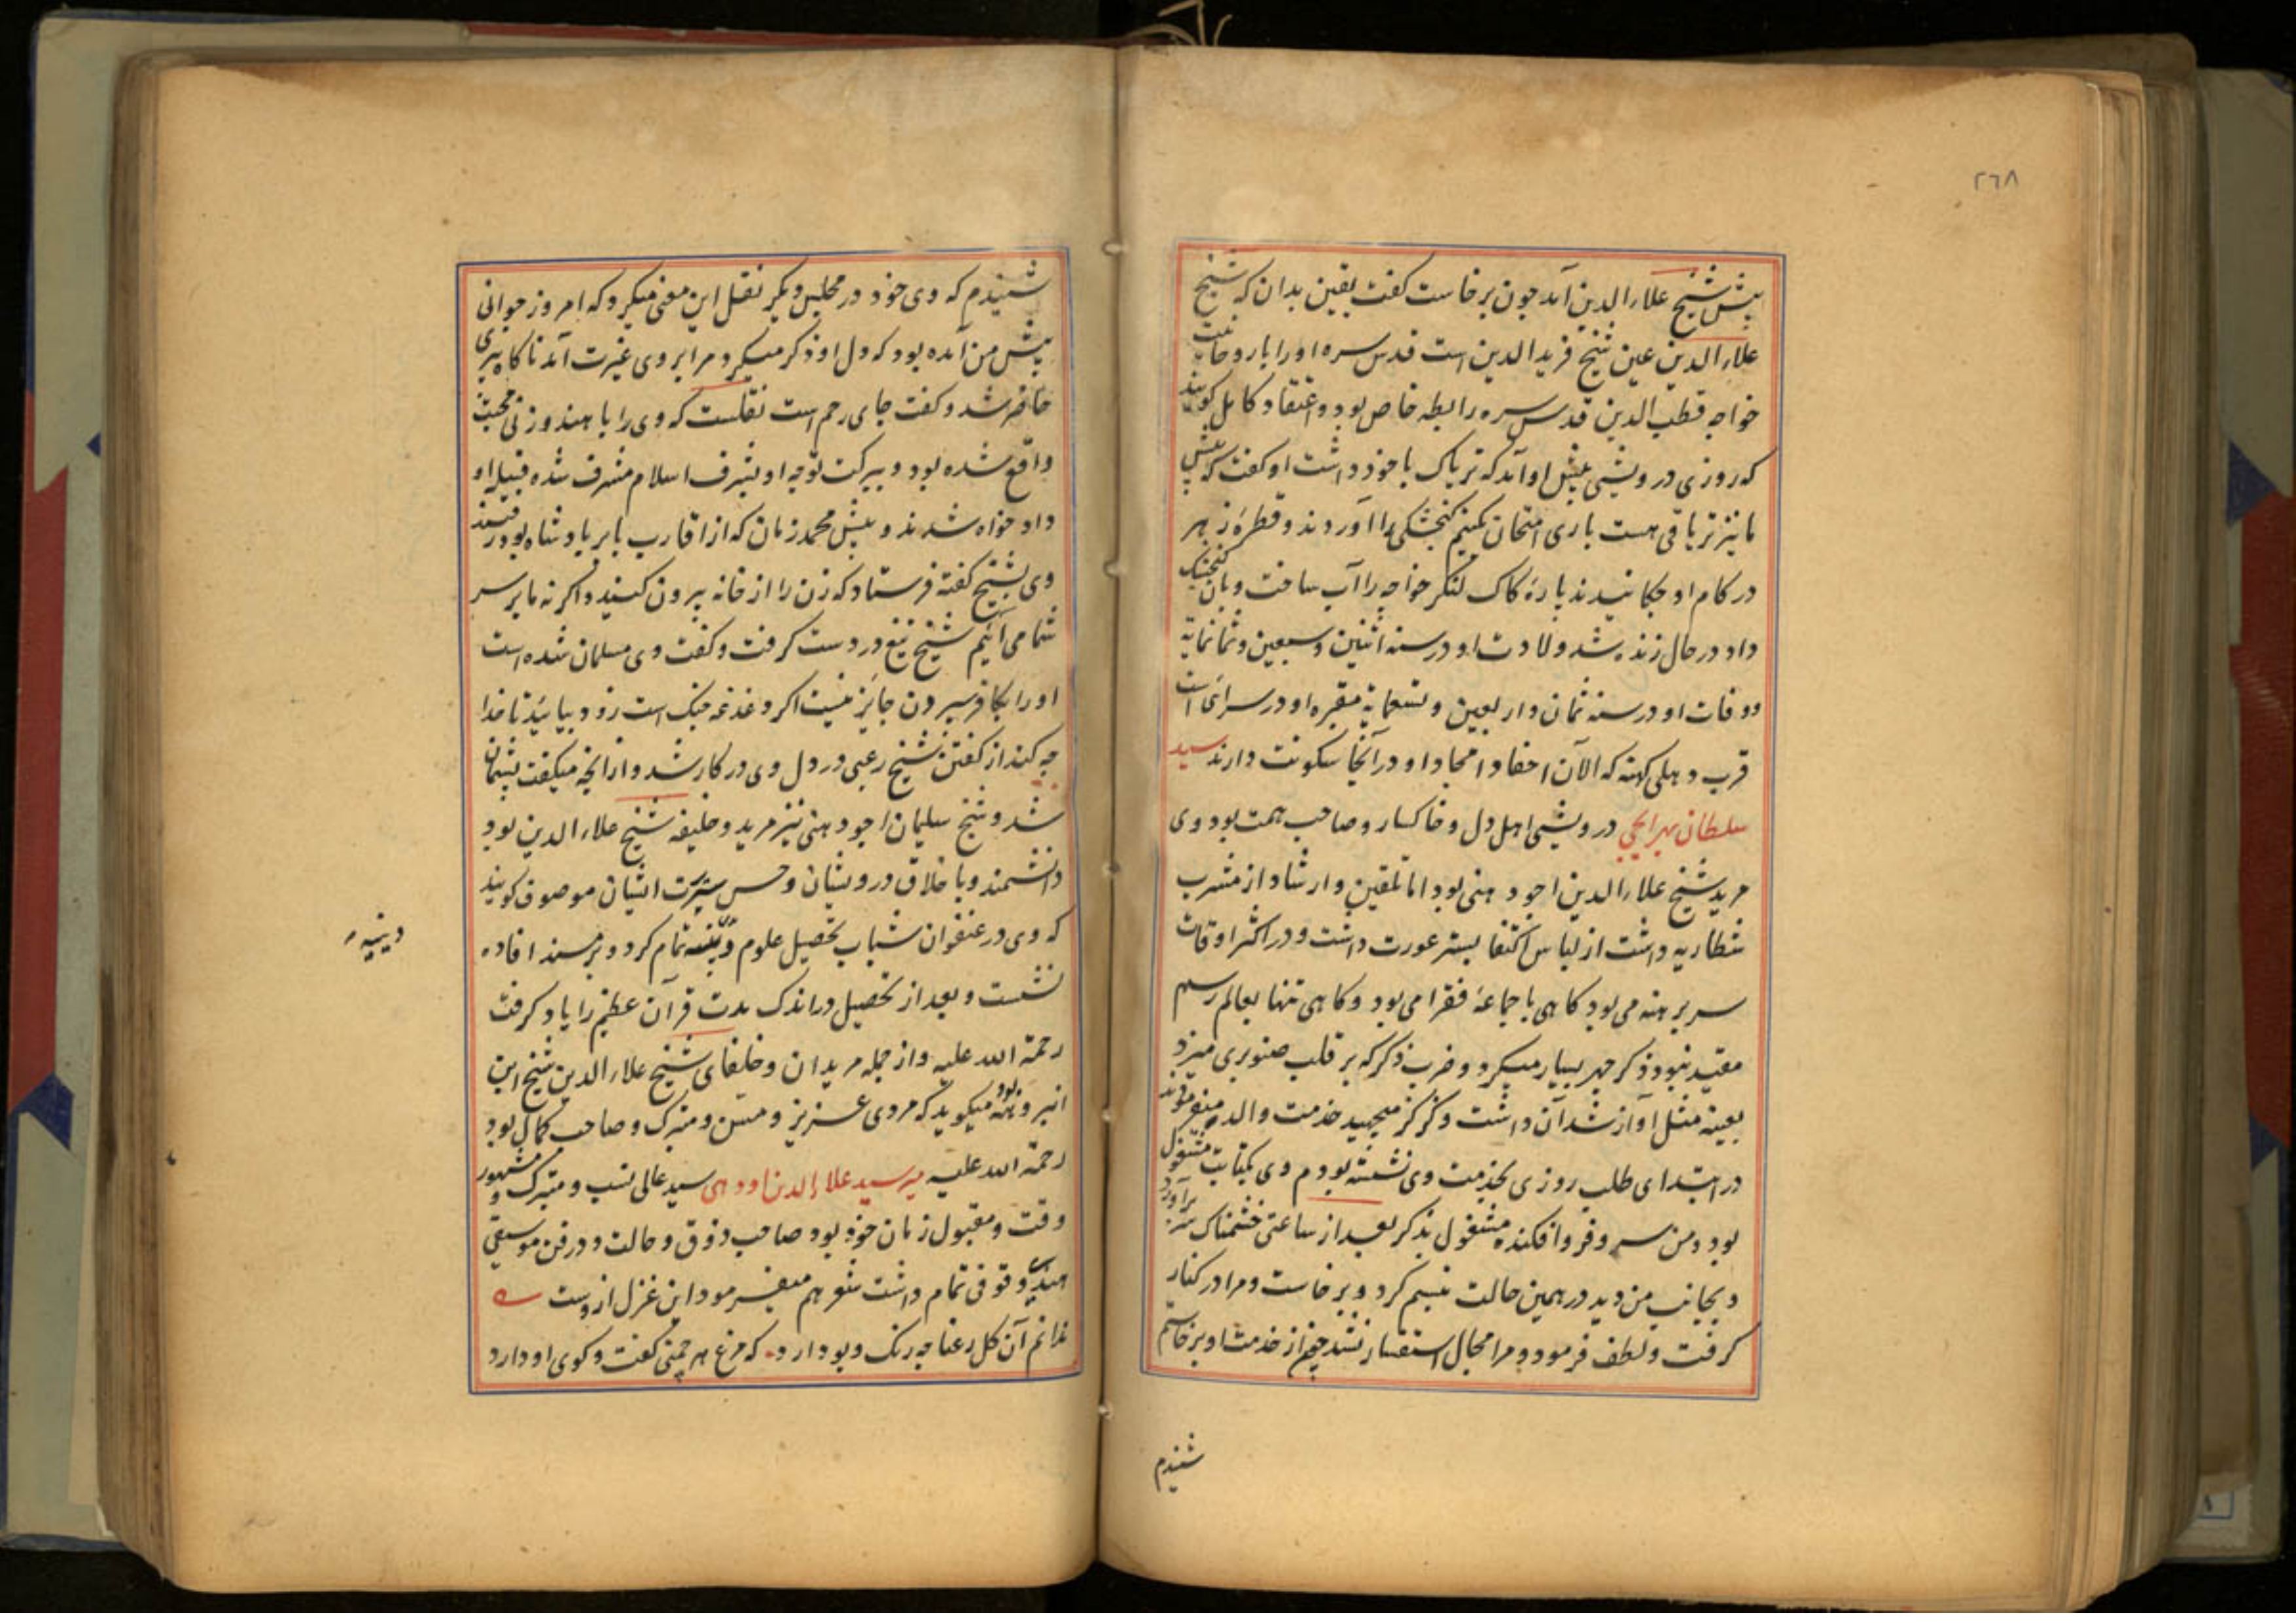 ٢٦٨
پیش شیخ علاء الدین آمد چون برخاست کفت یقین بدان که شیخ
علاء الدین عین شیخ فرید الدین است قدس سره او را با روحانیت
خواجه قطب الدین قدس سره رابطه خاص بود و اعتقاد کامل کویند
که روزی درویشی پیش او آمد که تریاک با خود داشت او کفت که پیش
ما نیز تریاقی هست باری امتحان کنیم کنجشکی را آوردند و قطرهٔ زهر
در کام او چکانیدند پارهٔ کاک لنکر خواجه را آب ساخت و بان کنجشک
داد در حال زنده شد ولادت او در سنه اثنین و سبعین و ثمانمایة
و وفات او در سنه ثمان و اربعین و تسعمایة مقبره او در سرائ است
قرب دهلی کهنه که الآن احفاد و امجاد او در آنجا سکونت دارند سید
سلطان بهرایجی درویشی اهل دل و خاکسار و صاحب همت بود وی
مرید شیخ علاء الدین اجودهنی بود اما تلقین و ارشاد از مشرب
شطاریه داشت از لباس اکتفا بستر عورت داشت و در اکثر اوقات
سر برهنه می بود کاهی با جماعهٔ فقرا می بود و کاهی تنها بعالم رسم
مقید نبود ذکر جهر بسیار میکرد و ضرب ذکر که بر قلب صنوبری میزد
بعینه مثل آواز شد آن داشت وکزکز میجهید خدمت والد میفرمودند
در ابتدای طلب روزی بخدمت وی نشسته بودم وی بکتابت مشغول
بود و من سر فرو افکنده مشغول بذکر بعد از ساعتی خشمناک سر برآورد
و بجانب من دید در همین حالت تبسم کرد و برخاست و مرا در کنار
کرفت و لطف فرمود و مرا مجال استفسار نشد چون از خدمت او برخاستم
شنیدم
شنیدم که وی خود در مجلس دیکر نقل این معنی میکرد که امروز جوانی
پیش من آمده بود که دل او ذکر میکرد مرا بر وی غیرت آمد ناکاه پیری
حاضر شد و کفت جای رحم است نقلست که وی را با هندو زنی محبت
واقع شده بود و ببرکت توجه او بشرف اسلام مشرف شده قبیله او
داد خواه شدند و پیش محمد زمان که از اقارب بابر بادشاه بود رفتند
وی بشیخ کفته فرستاد که زن را از خانه بیرون کنید و اکر نه ما بر سر
شما می آئیم شیخ تیغ در دست کرفت و کفت وی مسلمان شده است
او را بکافر سپردن جایز نیست اکر دغدغه جنک است زود بیایید تا خدا
چه کند از کفتن شیخ رعبی در دل وی در کار شد و از آنچه میکفت پشیمان
شد و شیخ سلیمان اجودهنی نیز مرید و خلیفه شیخ علاء الدین بود
دانشمند و با خلاق درویشان و حسن سیرت ایشان موصوف کویند
که وی در عنفوان شباب تحصیل علوم دینیه تمام کرد و بر مسند افاده
دینیه
نشست و بعد از تحصیل در اندک مدت قرآن عظیم را یاد کرفت
رحمة الله علیه و از جمله مریدان و خلفای شیخ علاء الدین شیخ این
بود میکوید که مردی عزیز و مسن و متبرک و صاحب کمال بود
رحمة الله علیه میر سید علاء الدین اودهی سید عالی نسب و متبرک و مشهور
وقت و مقبول زمان خود بود صاحب ذوق و حالت و در فن موسیقی
هندی وقوفی تمام داشت شعر هم میفرمود این غزل از وست
ندانم آن کل رعنا چه رنک و بو دارد که مرغ هر چمنی کفت و کوی او دارد